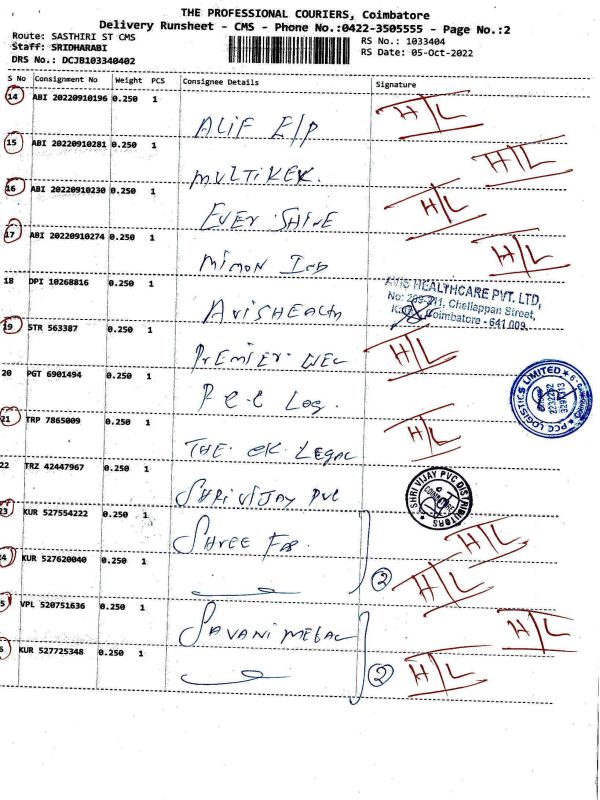 THE PROFESSIONAL COURIERS, Coimbatore
Delivery Runsheet - CMS - Phone No.:0422-3505555 - Page No.:2
Route: SASTHIRI ST CMS
RS No.: 1033404
Staff: SRIDHARABI
RS Date: 05-Oct-2022
DRS No.: DCJB103340402
S No Consignment No Weight PCS Consignee Details Signature
14 ABI 20220910196 0.250 1 ALIF E/P H/L
15 ABI 20220910281 0.250 1 MULTIKEK. H/L
16 ABI 20220910230 0.250 1 EVER SHINE H/L
17 ABI 20220910274 0.250 1 MIMON IND H/L
18 DPI 10268816 0.250 1 AVISHEALTH
AVIS HEALTHCARE PVT. LTD.
No: 209-211, Chellappan Street,
Coimbatore - 641 009.
19 STR 563387 0.250 1 PREMIER WEL H/L
20 PGT 6901494 0.250 1 P C C Log.
PCC LOGISTICS LIMITED
21 TRP 7865009 0.250 1 THE OK LEGAL H/L
22 TRZ 42447967 0.250 1 SHRI VIJAY PVC
SHRI VIJAY PVC DISTRIBUTORS
23 KUR 527554222 0.250 1 SHREE FAB. H/L
24 KUR 527620040 0.250 1 2 H/L
5 VPL 520751636 0.250 1 SAVANI METAL H/L
6 KUR 527725348 0.250 1 2 H/L